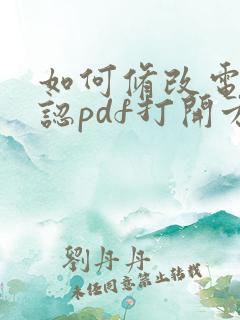 如何脩改電
認pdf打開方
劉丹丹
未任同意禁止转载